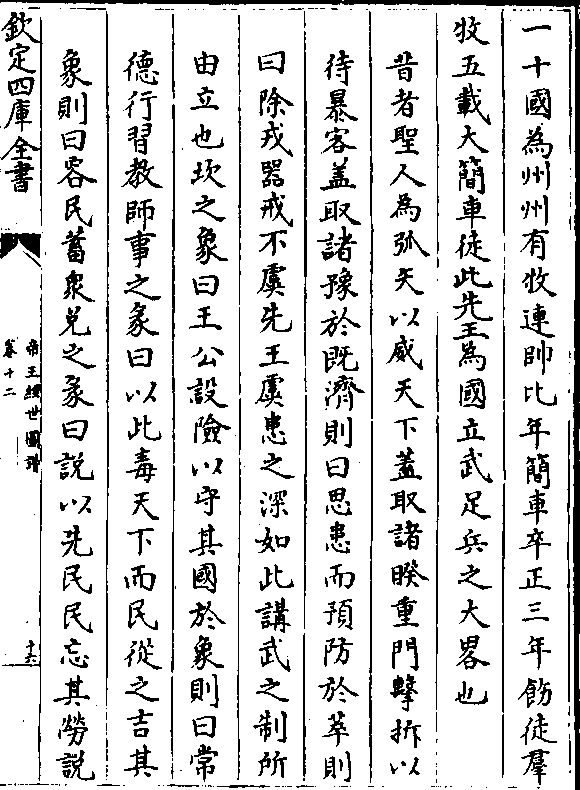 一十國為州州有牧連帥比年簡車卒正三年飭徒羣
牧五載大簡車徒此先王為國立武足兵之大畧也
昔者聖人為弧矢以威天下蓋取諸睽重門擊拆以
待暴客蓋取諸豫於既濟則曰思患而預防於萃則
曰除戎器戒不虞先王虞患之深如此講武之制所
由立也坎之彖曰王公設險以守其國於象則曰常
德行習教師事之彖曰以此毒天下而民從之吉其
象則曰容民蓄衆兌之彖曰説以先民民忘其勞説
欽定四庫全書
帝王經世圖譜
卷十二
十六